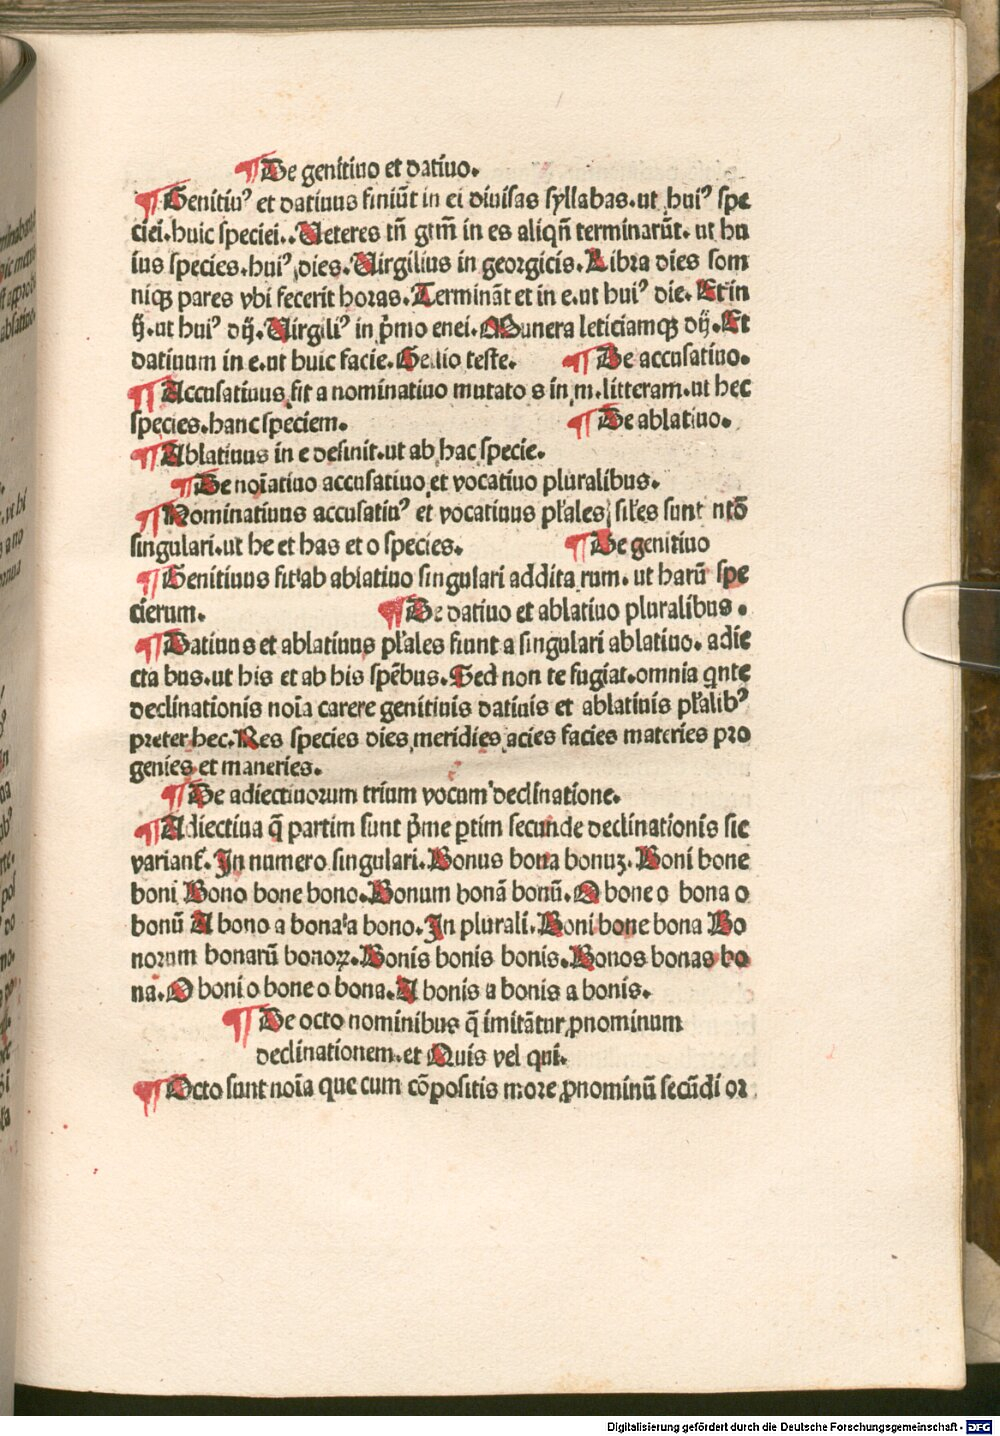 ¶De genitiuo et datiuo.
¶Genitiuꝰ et datiuus finiūt in ei diuisas syllabas.ut huiꝰ spe
ciei.huic speciei..Ueteres tn̄ gtm̄ in es aliqn̄ terminarūt. ut hu
ius species.huiꝰ dies.Uirgilius in georgicis.Libra dies som
niqꝫ pares vbi fecerit horas.Termināt et in e.ut huiꝰ die.Et in
ij.ut huiꝰ dij.Uirgiliꝰ in p̄mo enei.Munera leticiamqꝫ dij.Et
datiuum in e.ut huic facie.Gellio teste. ¶De accusatiuo.
¶Accusatiuus fit a nominatiuo mutato s in m.litteram.ut hec
species.hanc speciem. ¶De ablatiuo.
¶Ablatiuus in e desinit.ut ab hac specie.
¶De noīatiuo accusatiuo et vocatiuo pluralibus.
¶Nominatiuus accusatiuꝰ et vocatiuus pl'ales sil'es sunt ntō
singulari.ut he et has et o species. ¶De genitiuo
¶Genitiuus fit ab ablatiuo singulari addita rum. ut harū spe
cierum. ¶De datiuo et ablatiuo pluralibus.
¶Datiuus et ablatiuus pl'ales fiunt a singulari ablatiuo. adie
cta bus.ut his et ab his spēbus.Sed non te fugiat.omnia qnte
declinationis noīa carere genitiuis datiuis et ablatiuis pl'alibꝰ
preter hec.Res species dies meridies acies facies materies pro
genies et maneries.
¶De adiectiuorum trium vocum declinatione.
¶Adiectiua q̄ partim sunt p̄me ꝑtim secunde declinationis sic
variant᷑.In numero singulari.Bonus bona bonuꝫ.Boni bone
boni Bono bone bono.Bonum bonā bonū.O bone o bona o
bonū A bono a bona a bono.In plurali.Boni bone bona Bo
norum bonarū bonoꝝ.Bonis bonis bonis.Bonos bonas bo
na.O boni o bone o bona.A bonis a bonis a bonis.
¶De octo nominibus q̄ imitātur ꝓnominum
declinationem.et Quis vel qui.
¶Octo sunt noīa que cum cōpositis more ꝓnominū secūdi or
Digitalisierung gefördert durch die Deutsche Forschungsgemeinschaft - DFG